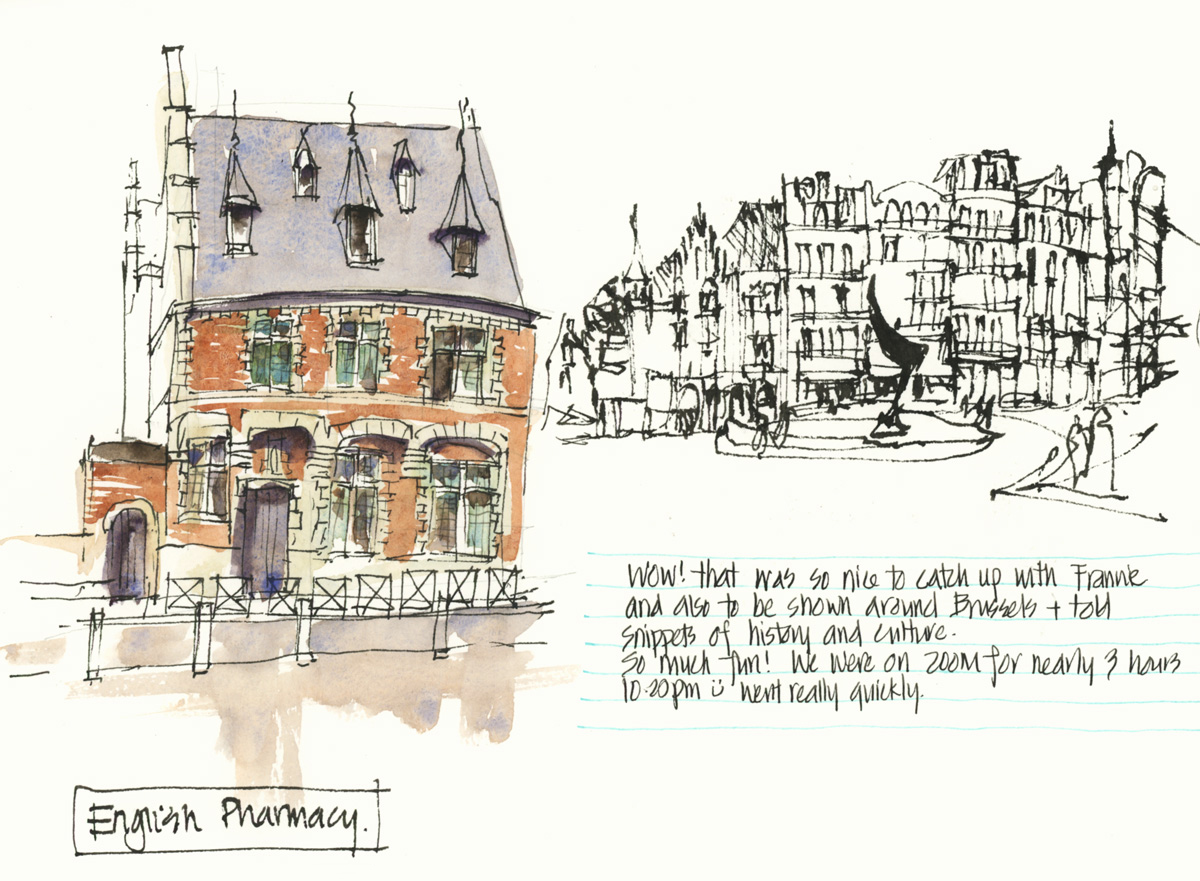 Wow! that was so nice to catch up with Frannie
and also to be shown around Brussels + told
snippets of history and culture.
So much fun! We were on ZOOM for nearly 3 hours
10.20pm ü went really quickly.
English Pharmacy.